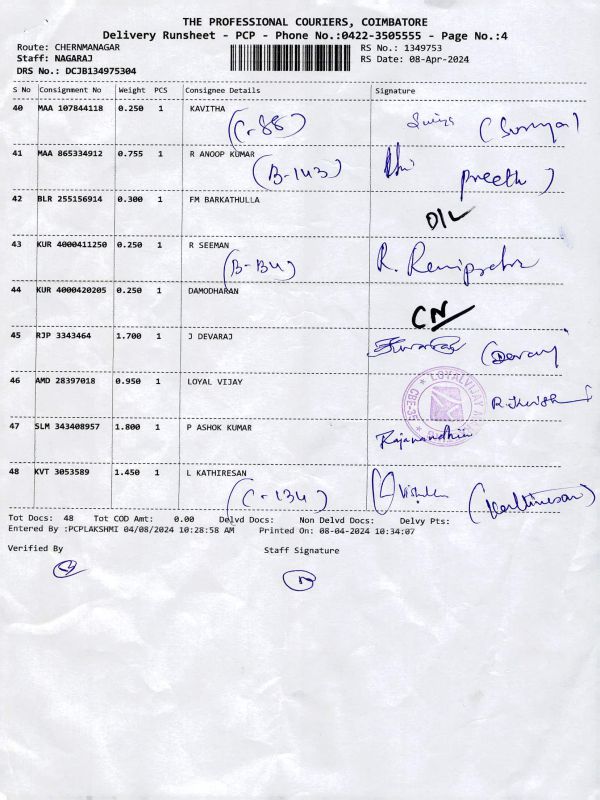 THE PROFESSIONAL COURIERS, COIMBATORE
Delivery Runsheet - PCP - Phone No.:0422-3505555 - Page No.:4
Route: CHERNMANAGAR RS No.: 1349753
Staff: NAGARAJ RS Date: 08-Apr-2024
DRS No.: DCJB134975304
S No Consignment No Weight PCS Consignee Details Signature
40 MAA 107844118 0.250 1 KAVITHA
(C-88) (Surya)
41 MAA 865334912 0.755 1 R ANOOP KUMAR
(B-143) Preeth)
42 BLR 255156914 0.300 1 FM BARKATHULLA
D/L
43 KUR 4000411250 0.250 1 R SEEMAN
(B-B4) R.
44 KUR 4000420205 0.250 1 DAMODHARAN
CN
45 RJP 3343464 1.700 1 J DEVARAJ
(Devaraj
46 AMD 28397018 0.950 1 LOYAL VIJAY
LOYALVIJAY CBE-35
47 SLM 343408957 1.800 1 P ASHOK KUMAR
Rajanandhini
48 KVT 3053589 1.450 1 L KATHIRESAN
(C-134) (Kathiresan)
Tot Docs: 48 Tot COD Amt: 0.00 Delvd Docs: Non Delvd Docs: Delvy Pts:
Entered By :PCPLAKSHMI 04/08/2024 10:28:58 AM Printed On: 08-04-2024 10:34:07
Verified By Staff Signature